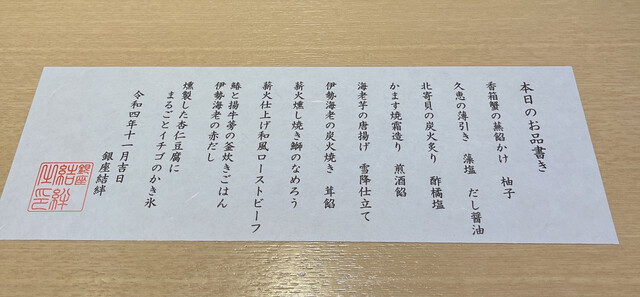 本日のお品書き
香箱蟹の蒸餡かけ　柚子
久恵の薄引き　藻塩　だし醤油
北寄貝の炭火炙り　酢橘塩
かます焼霜造り　煎酒餡
海老芋の唐揚げ　雪降仕立て
伊勢海老の炭火焼き　茸餡
薪火燻し焼き鰤のなめろう
薪火仕上げ和風ローストビーフ
鰆と揚牛蒡の釜炊きごはん
伊勢海老の赤だし
燻製した杏仁豆腐に
まるごとイチゴのかき氷
令和四年十一月吉日
銀座結絆
銀座
結絆
之印